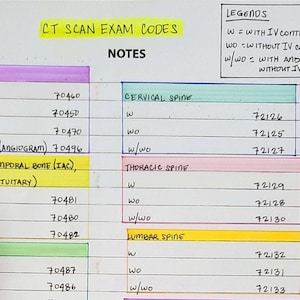 CT SCAN EXAM CODES
NOTES
LEGENDS
W = WITH IV
WO = WITHOUT IV
W/WO = WITH AND
WITHOUT IV
70460
70450
70470
(ANGIOGRAM) 70496
TEMPORAL BONE (IAC),
70481
70480
70482
70487
70486
CERVICAL SPINE
W 72126
WO 72125
W/WO 72127
THORACIC SPINE
W 72129
WO 72128
W/WO 72130
LUMBAR SPINE
W 72132
WO 72131
W/WO 72133